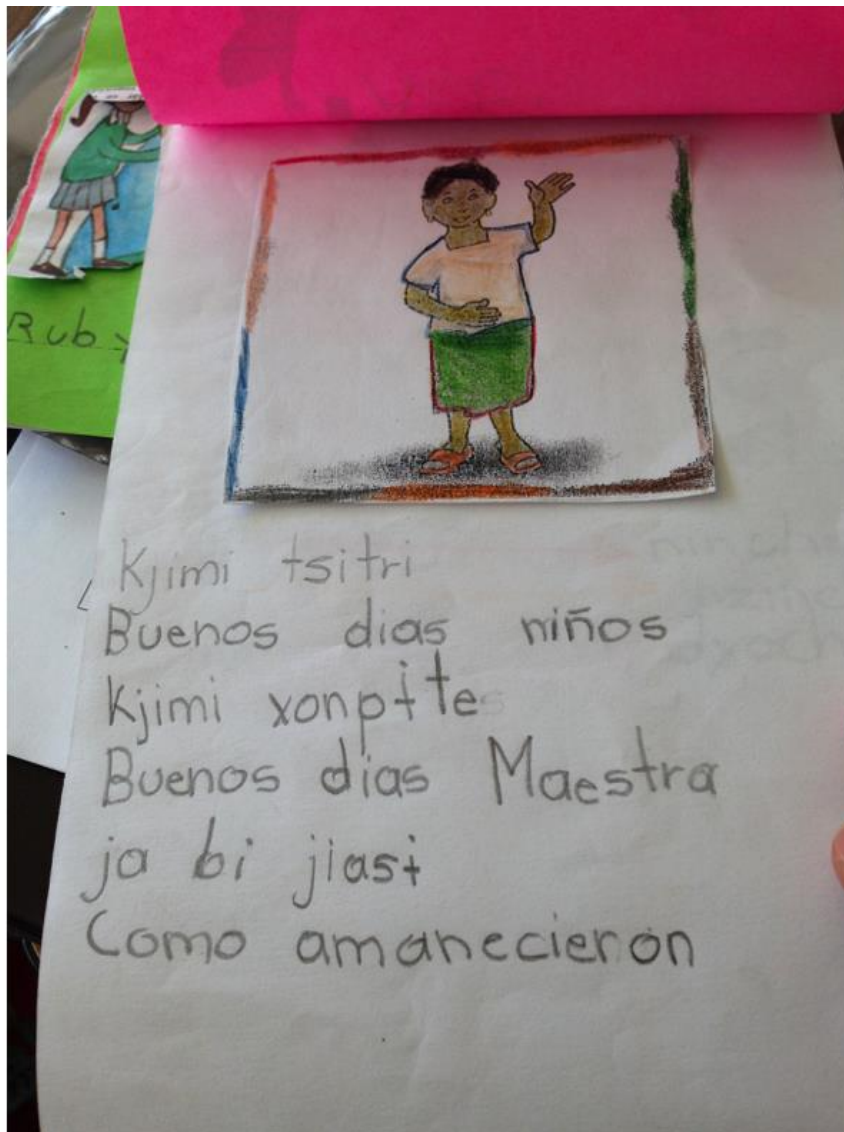 Ruby
Kjimi tsitri
Buenos dias niños
Kjimi xonpɨte
Buenos dias Maestra
ja bi jiasɨ
Como amanecieron